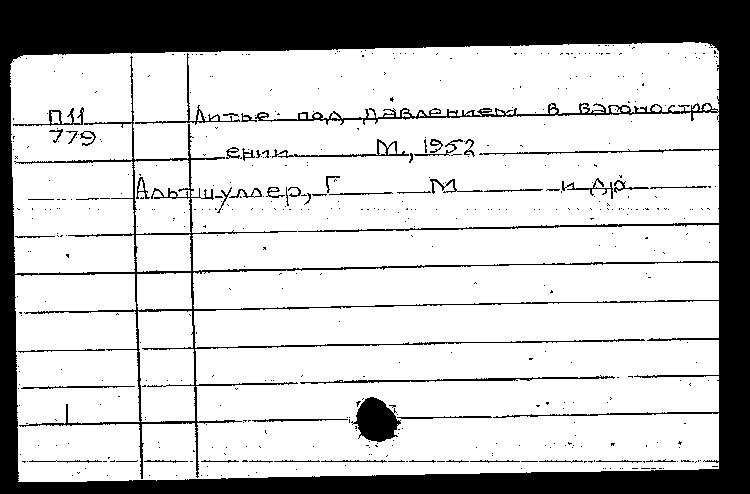 П11 Литье под давлением в вагоностро
779
ении М., 1952
Альтшуллер, Г М и др.